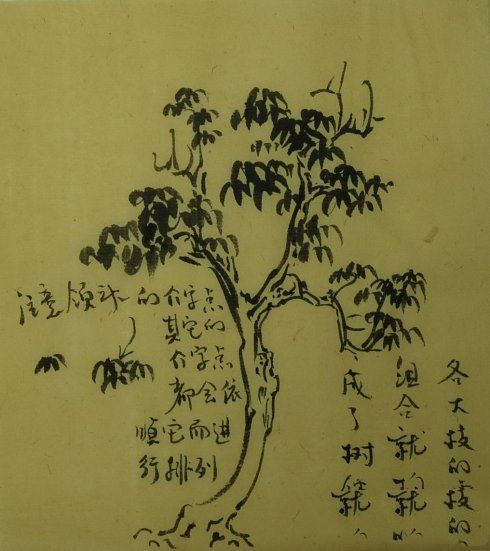 注意领头的介字点
其它的
介字点
都会依
顺它而进
行排列
各大枝的接的
组合就构就
成了树就